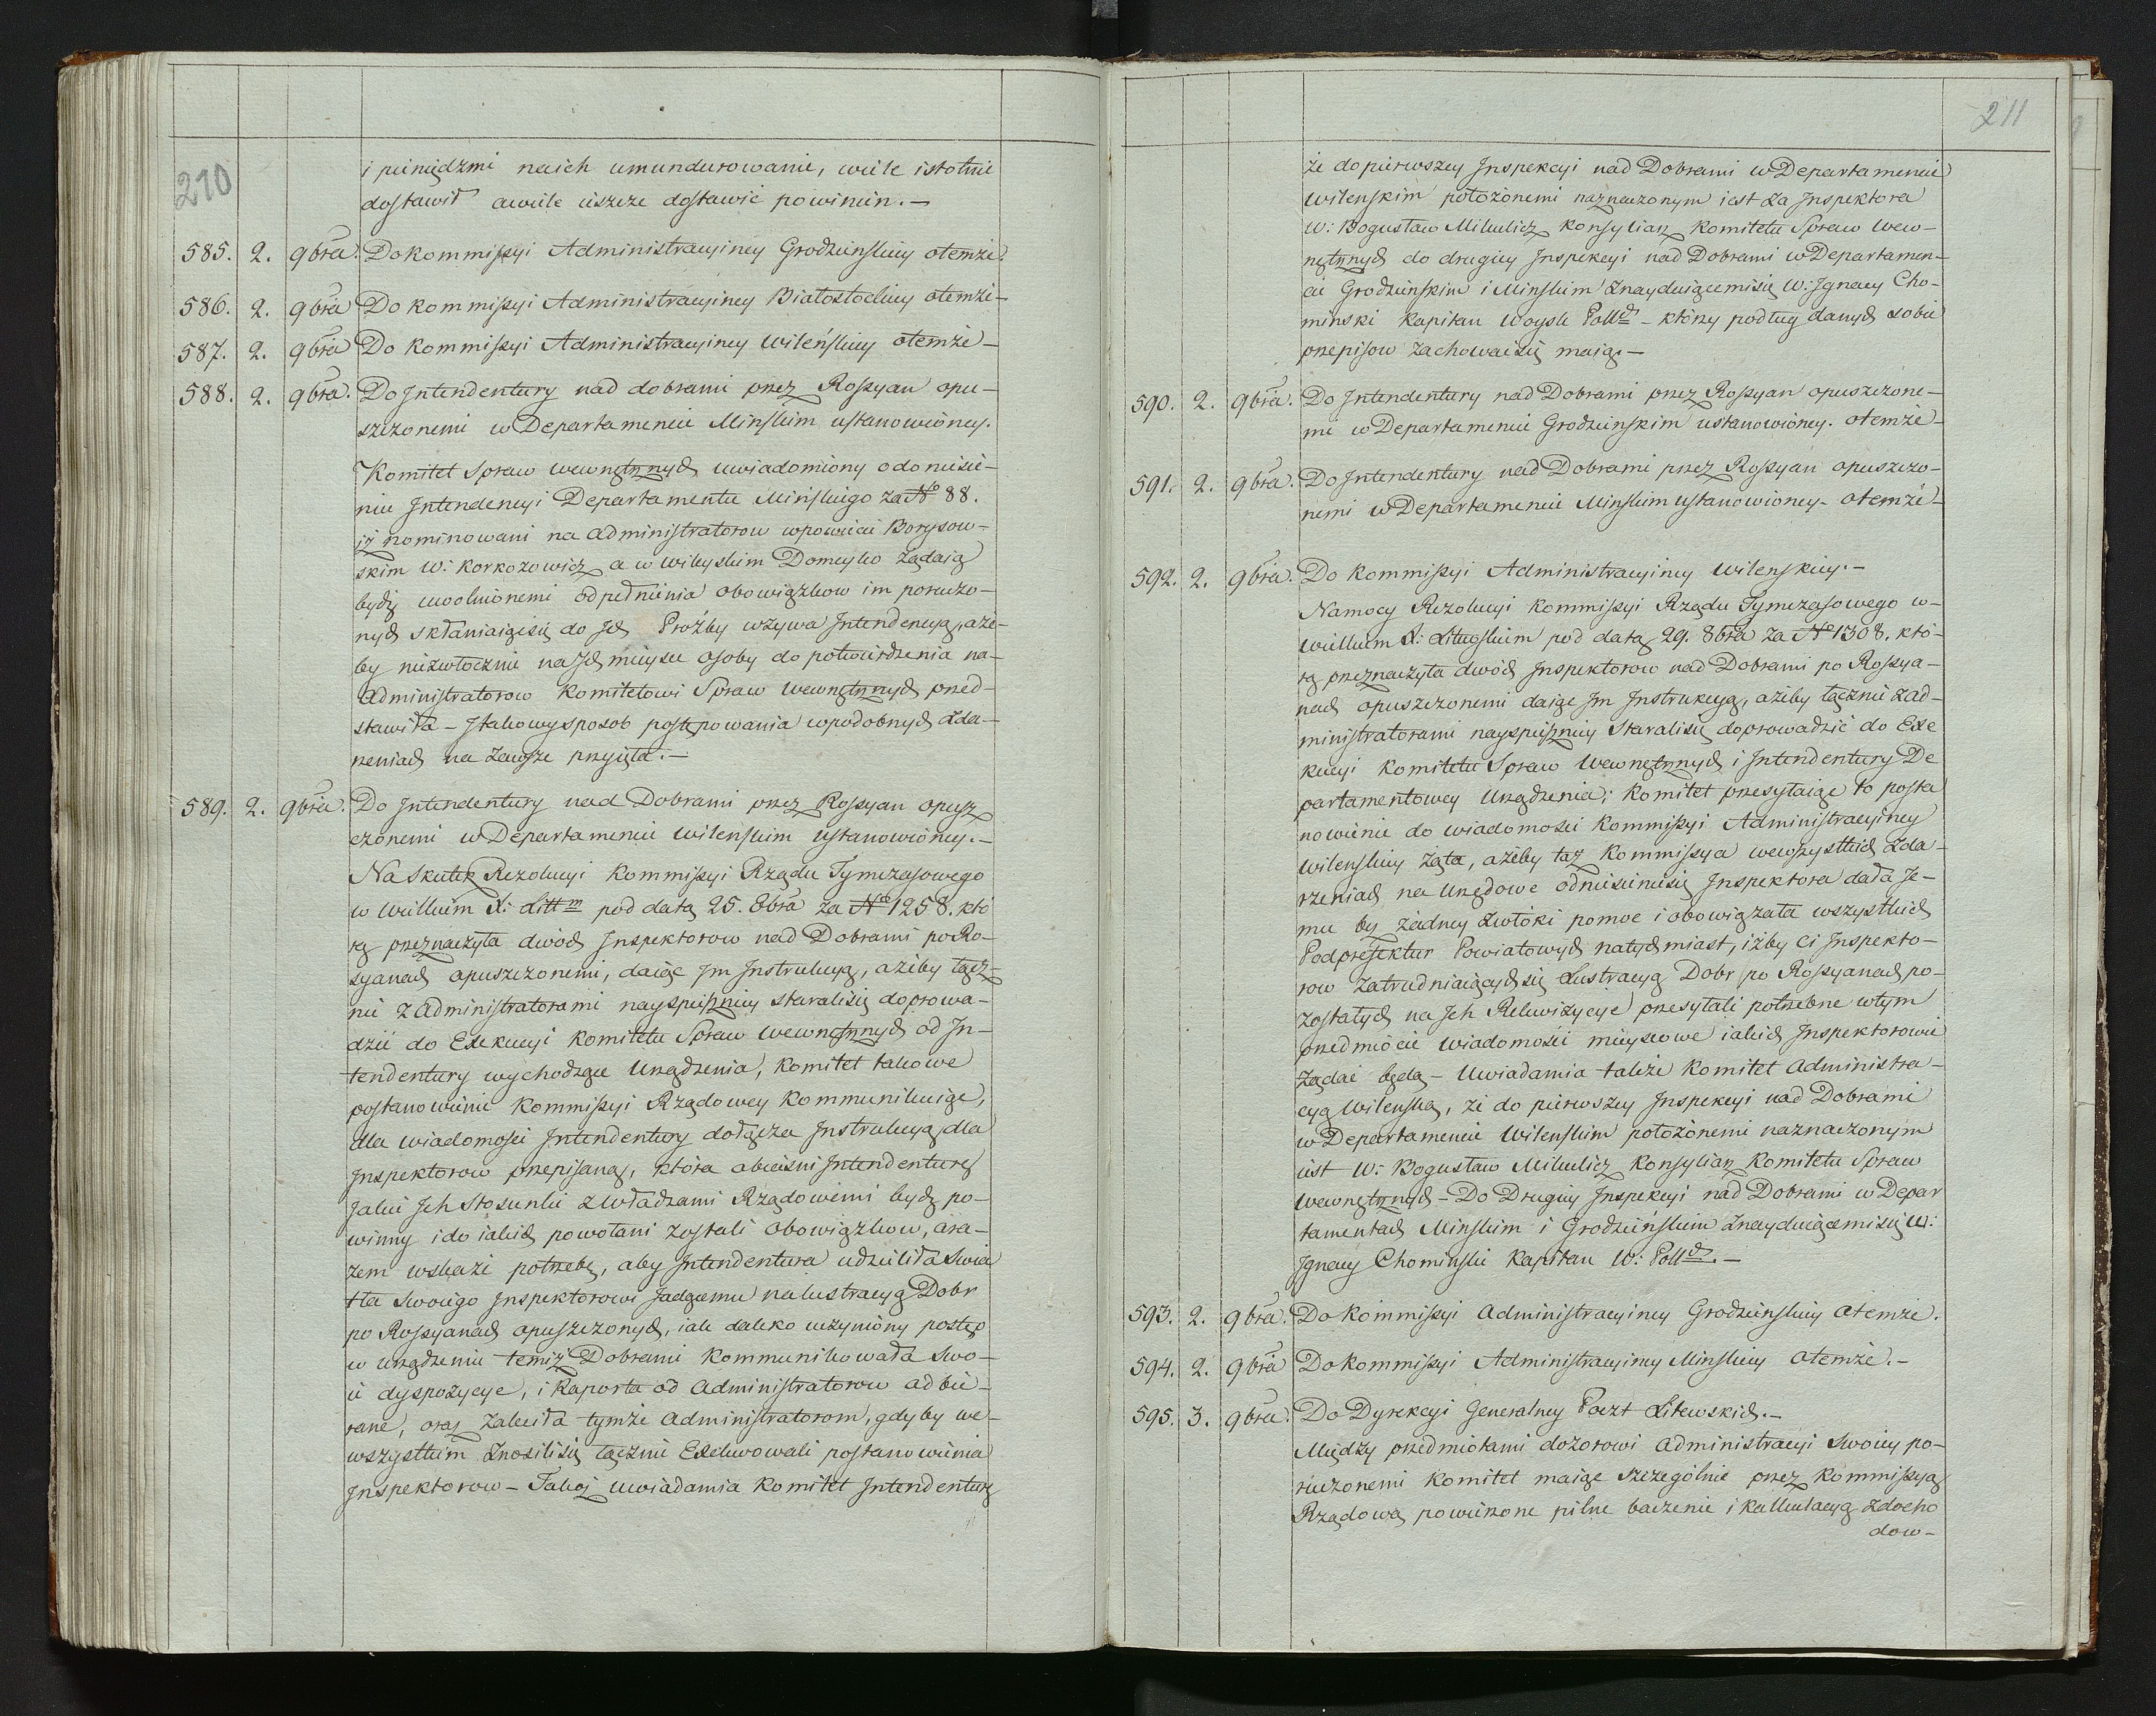 210
i pieniędzmi na ich umundurowanie, wiele istotnie
dostawił a wiele ieszcze dostawić powinien.—
585. 2. 9bra. Do Kommissyi Administracyiney Grodzieńskiey o temże.
586. 2. 9bra Do Kommissyi Administracyiney Białostockiey o temże—
587. 2. 9bra Do Kommissyi Administracyiney Wileńskiey o temże—
588. 2. 9bra. Do Intendentury nad dobrami przez Rossyan opu-
szczonemi w Departamencie Mińskim ustanowioney.
Komitet Spraw wewnętrznych uwiadomiony o doniesie-
niu Intendencyi Departamentu Mińskiego za No 88.
iż nominowani na Administratorow w powiecie Borysow-
skim W: Korkozowicz a w Wileyskim Domeyko żądaią
bydź uwolnionemi od pełnienia obowiązkow im poruczo-
nych skłaniaiąc się do Ich Prośby wzywa Intendencyą, aże-
by niezwłocznie na Ich mieysce osoby do potwierdzenia na
Administratorow Komitetowi Spraw wewnętrznych przed-
stawiła — I takowy sposob postępowania w podobnych zda-
rzeniach na zawsze przyięła.—
589. 2. 9bra. Do Intendentury nad Dobrami przez Rossyan opusz
czonemi w Departamencie Wilenskim ustanowioney.—
Na skutek Rezolucyi Kommissyi Rządu Tymczasowego
w Wielkiem X: Litt m pod datą 25. 8bra za No 1258. któ
rą przeznaczyła dwóch Inspektorow nad Dobrami po Ro-
syanach opuszczonemi, daiąc Im Instrukcyą, ażeby łącz-
nie z Administratorami nayspieszniey starali się doprowa-
dzić do Exekucyi Komitetu Spraw wewnętrznych od In-
tendentury wychodzące Urządzenia, Komitet takowe
postanowienie Kommissyi Rządowey Kommunikuiąc,
dla wiadomości Intendentury dołącza Instrukcyą dla
Inspektorow przepisaną, która obiaśni Intendenturę
Jakie Ich stosunki z Władzami Rządowemi bydź po-
winny i do iakich powołani zostali obowiązkow, a ra-
zem wskaże potrzebę, aby Intendentura udzieliła Swia
tła Swoiego Inspektorowi Jadącemu na lustracyą Dobr
po Rossyanach opuszczonych, iak daleko uczyniony postęp
w urządzeniu temiż Dobrami Kommunikowała swo-
ie dyspozycye, i Raporta od Administratorow odbie-
rane, oraz zaleciła tymże Administratorom, gdyby we-
wszystkiem znosili się łącznie Exekwowali postanowienia
Inspektorow — Takoż uwiadamia Komitet Intendenturę
211
że do pierwszey Inspekcyi nad Dobrami w Departamencie
Wilenskim położonemi naznaczonym iest za Inspektora
W: Bogusław Mikulicz Konsyliarz Komitetu Spraw Wew-
nętrznych do drugiey Inspekcyi nad Dobrami w Departamen-
cie Grodzieńskim i Minskim znayduiącemi się W: Ignacy Cho-
minski Kapitan Woysk Poll ch — którzy podług danych sobie
przepisow zachowac się maią.—
590. 2. 9bra. Do Intendentury nad Dobrami przez Rossyan opuszczone-
mi w Departamencie Grodzienskim ustanowioney. o temże—
591. 2. 9bra. Do Intendentury nad Dobrami przez Rossyan opuszczo-
nemi w Departamencie Minskim ustanowioney— o temże—
592. 2. 9bra. Do Kommissyi Administracyiney Wilenskiey.—
Na mocy Rezolucyi Kommissyi Rządu Tymczasowego w-
Wielkiem X: Litewskiem pod datą 29. 8bra za No 1308. któ-
rą przeznaczyła dwóch Inspektorow nad Dobrami po Rossya-
nach opuszczonemi daiąc Im Instrukcyą, ażeby łącznie z Ad-
ministratorami nayspieszniey Starali się doprowadzić do Exe
kucyi Komitetu Spraw Wewnętrznych i Intendentury De
partamentowey Urządzenia; Komitet przesyłaiąc to posta
nowienie do wiadomości Kommissyi Administracyiney
Wilenskiey żąda, ażeby taż Kommissya we wszystkich zda-
rzeniach na Urzędowe odniesienie się Inspektora dała Je-
mu bez żadney zwłoki pomoc i obowiązała wszystkich
Podprefektur Powiatowych natychmiast, iżby ci Inspekto-
row zatrudniaiących się Lustracyą Dobr po Rossyanach po-
zostałych na Ich Rekwizycye przesyłali potrzebne w tym
przedmiocie wiadomości mieyscowe iakich Inspektorowie
żądać będą — Uwiadamia także Komitet Administra-
cyą Wilenską, że do pierwszey Inspekcyi nad Dobrami
w Departamencie Wilenskim położonemi naznaczonym
iest W: Bogusław Mikulicz Konsyliarz Komitetu Spraw
Wewnętrznych — Do Drugiey Inspekcyi nad Dobrami w Depar
tamentach Minskim i Grodzieńskim znayduiącemi się W:
Ignacy Chominski Kapitan W: Poll ch.—
593. 2. 9bra. Do Kommissyi Administracyiney Grodzieńskiey o temże.
594. 2. 9bra Do Kommissyi Administracyiney Minskiey o temże.—
595. 3. 9bra. Do Dyrekcyi Generalney Poczt Litewskich.—
Między przedmiotami dozorowi Administracyi Swoiey po-
ruczonemi Komitet maiąc szczególnie przez Kommissyą
Rządową powierzone pilne baczenie i kalkulacyą z docho
dow—